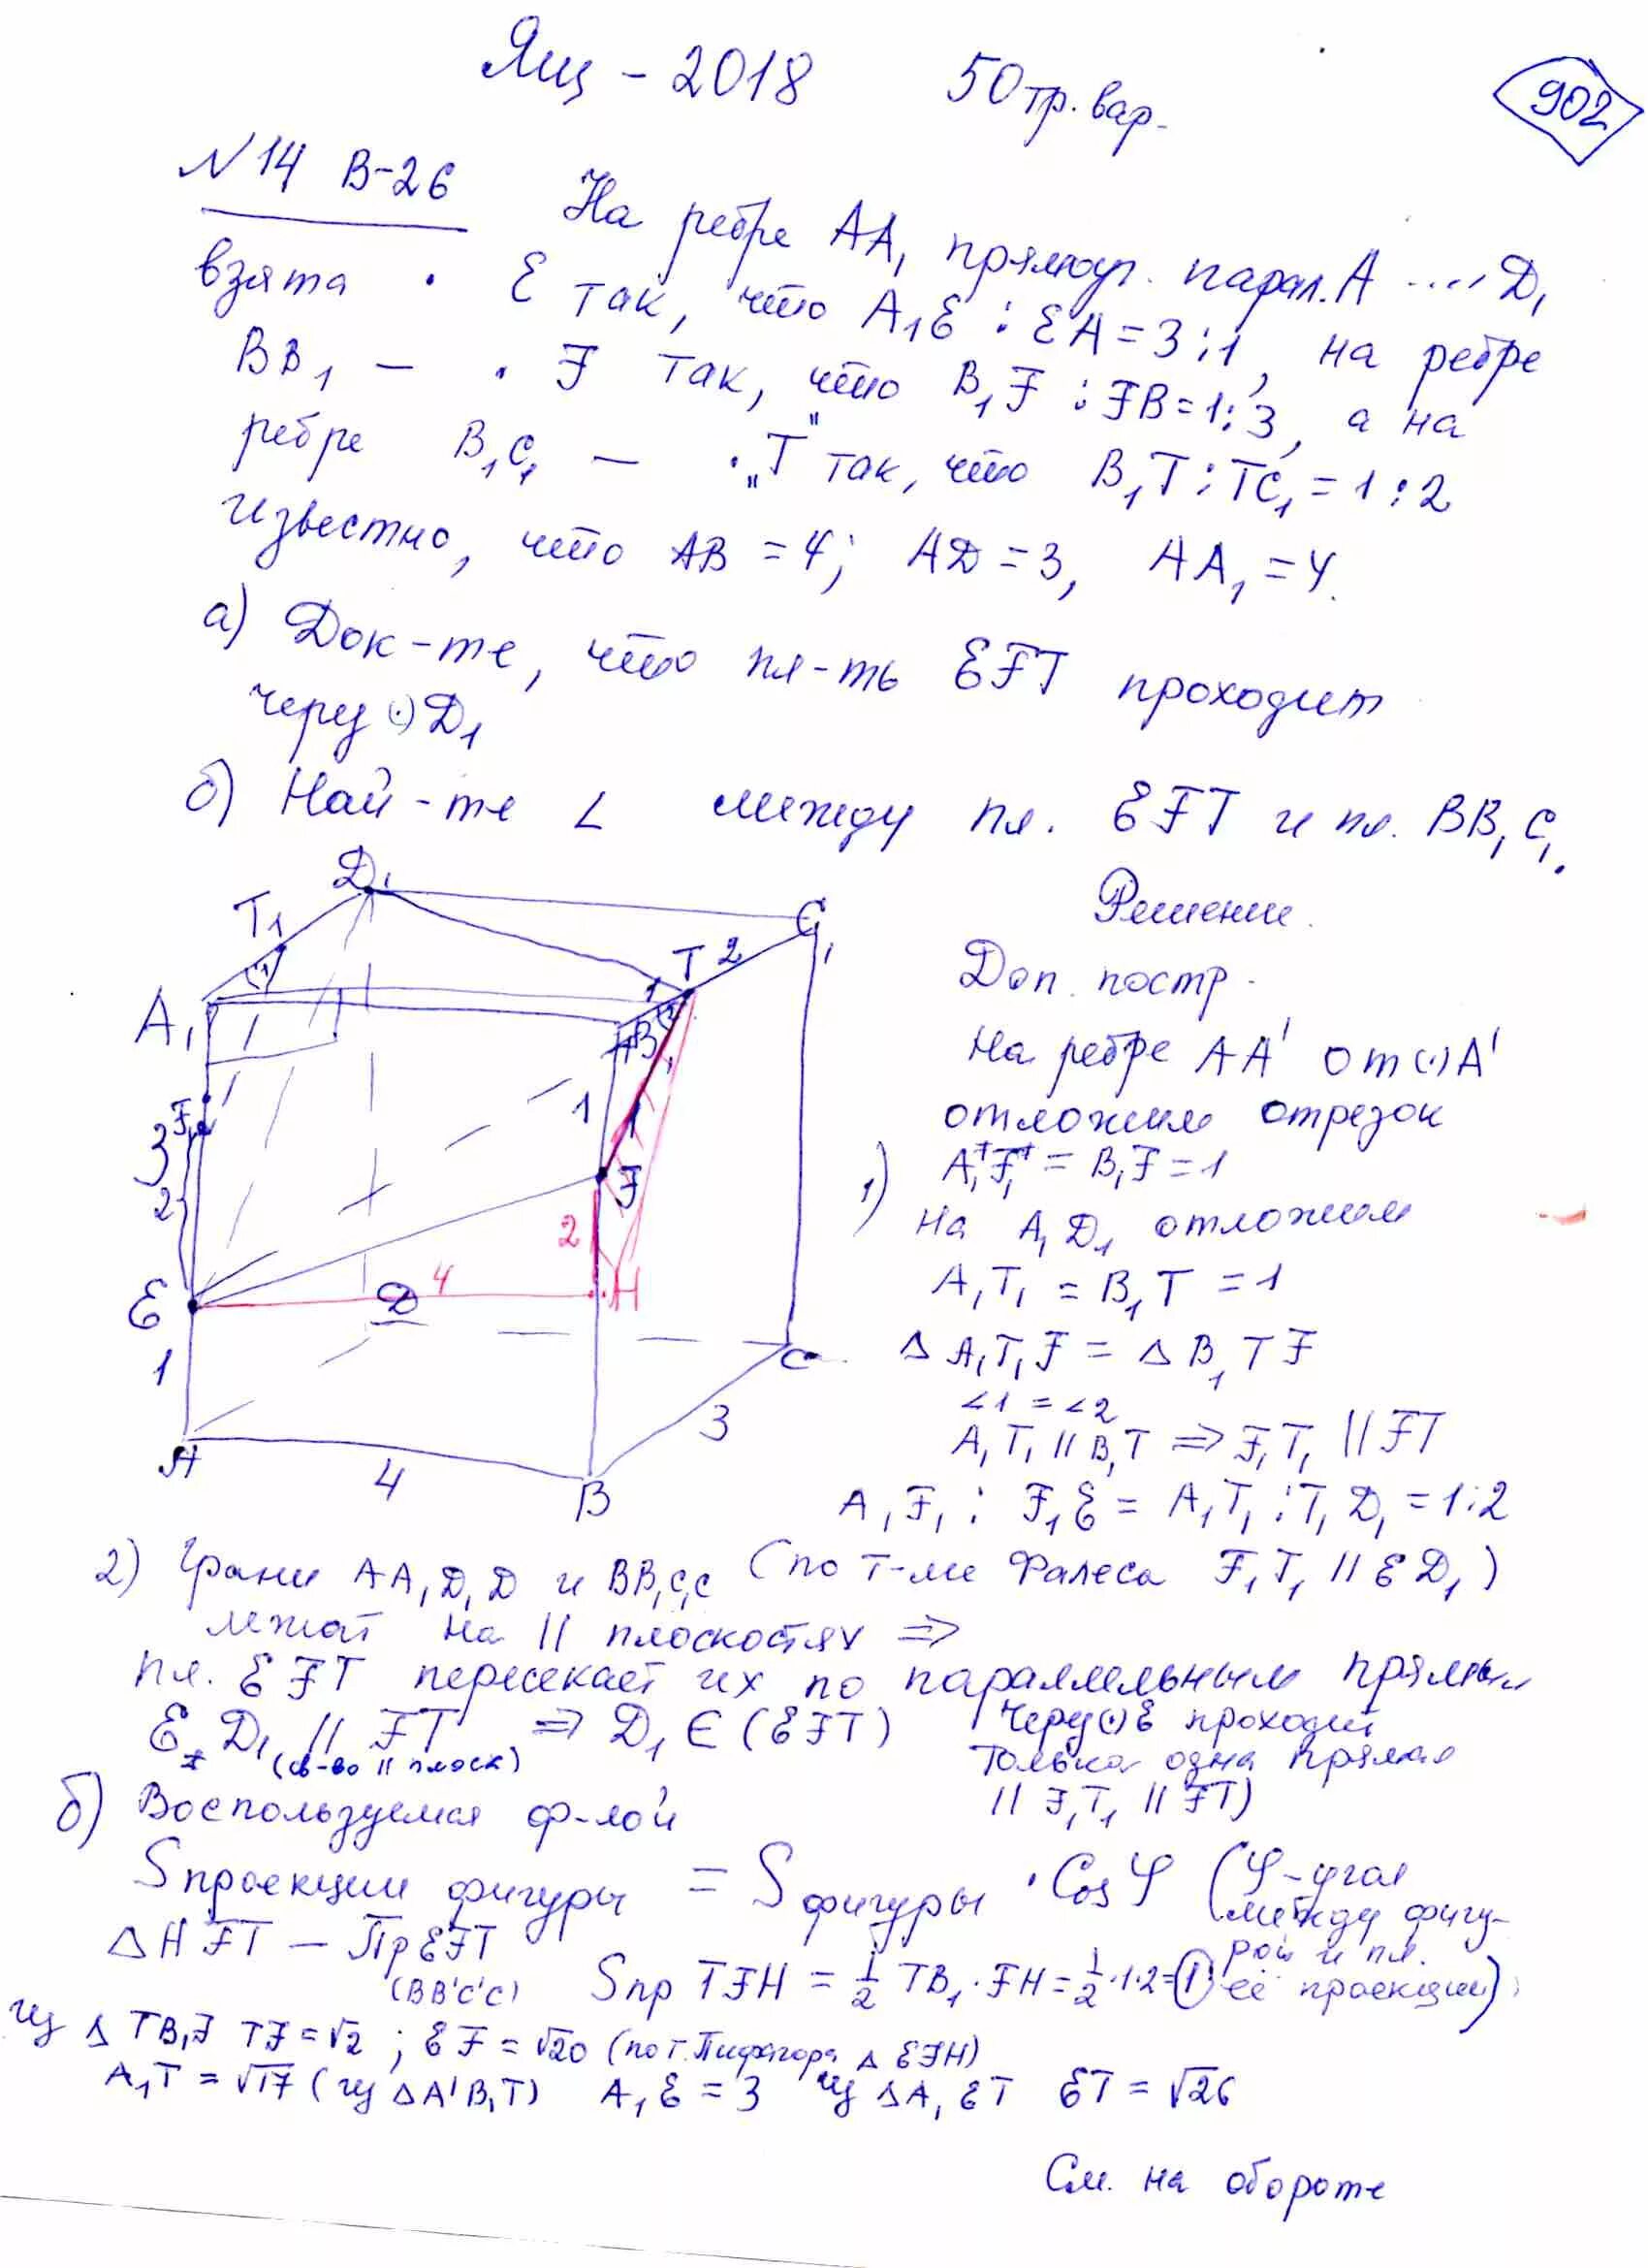 Ящ - 2018 50 тр. вар.
902
N 14 В-26 На ребре AA₁ прямоуг. парал. A ... D₁
взята · E так, что A₁E : EA = 3 : 1, на ребре
BB₁ — · F так, что B₁F : FB = 1 : 3, а на
ребре B₁C₁ — · "T" так, что B₁T : TC₁ = 1 : 2
известно, что AB = 4; AD = 3, AA₁ = 4.
а) Док-те, что пл-ть EFT проходит
через (·) D₁
б) Най-те ∠ между пл. EFT и пл. BB₁C₁.
D₁
C₁
T₁
T 2
1
A₁
B₁
1
F₁
3
2
F
2
E
4
H
D
1
C
3
A
4
B
Решение.
Доп. постр.
На ребре AA' от (·) A'
отложим отрезок
1) A₁F₁ = B₁F = 1
На A₁D₁ отложим
A₁T₁ = B₁T = 1
Δ A₁T₁F = Δ B₁TF
∠1 = ∠2
A₁T₁ || B₁T ⇒ F₁T₁ || FT
A₁F₁ : F₁E = A₁T₁ : T₁D₁ = 1:2
2) Грани AA₁D₁D и BB₁C₁C (по т-ме Фалеса F₁T₁ || ED₁)
лежат на || плоскостях ⇒
пл. EFT пересекает их по параллельным прямым
ED₁ || FT ⇒ D₁ ∈ (EFT) через (·) E проходит
(св-во || плоск) только одна прямая
|| F₁T₁ || FT)
б) Воспользуемся ф-лой
Sпроекции фигуры = Sфигуры · Cos φ (φ - угол
между фигу-
рой и пл.
её проекции)
Δ HFT — Пр EFT
(BB'C'C) Sпр TFH = ½ TB₁ · FH = ½ · 1 · 2 = 1
из Δ TB₁F TF = √2 ; EF = √20 (по т. Пифагора Δ EFH)
A₁T = √17 (из Δ A'B₁T) A₁E = 3 из Δ A₁ET ET = √26
См. на обороте